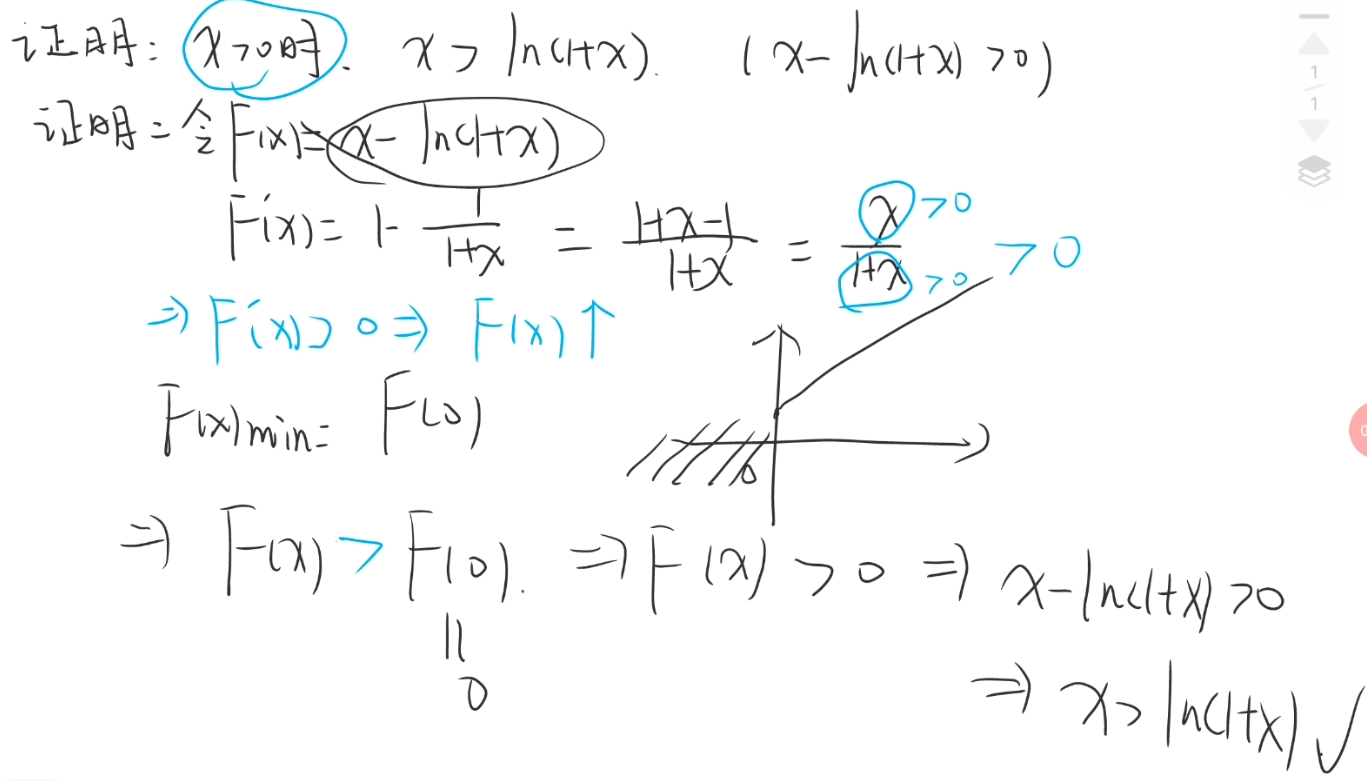 证明: x>0时. x > ln(1+x). (x-ln(1+x)>0)
证明: 令F(x)=x-ln(1+x)
F'(x)=1-\frac{1}{1+x} = \frac{1+x-1}{1+x} = \frac{x}{1+x} >0 >0 >0
⇒ F'(x)>0 ⇒ F(x)↑
F(x)min= F(0)
0
⇒ F(x) > F(0). ⇒ F(x)>0 ⇒ x-ln(1+x)>0
||
0
⇒ x>ln(1+x) ✓
1
1